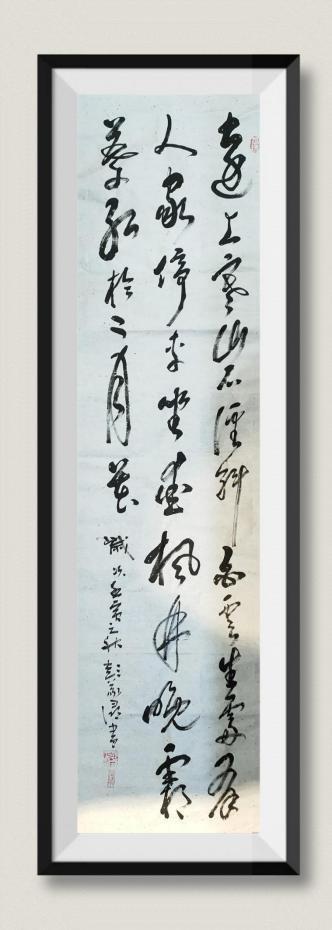 遠上寒山石徑斜白雲生處有
人家停車坐愛楓林晚霜
葉紅於二月花
歲次壬寅之秋彭書